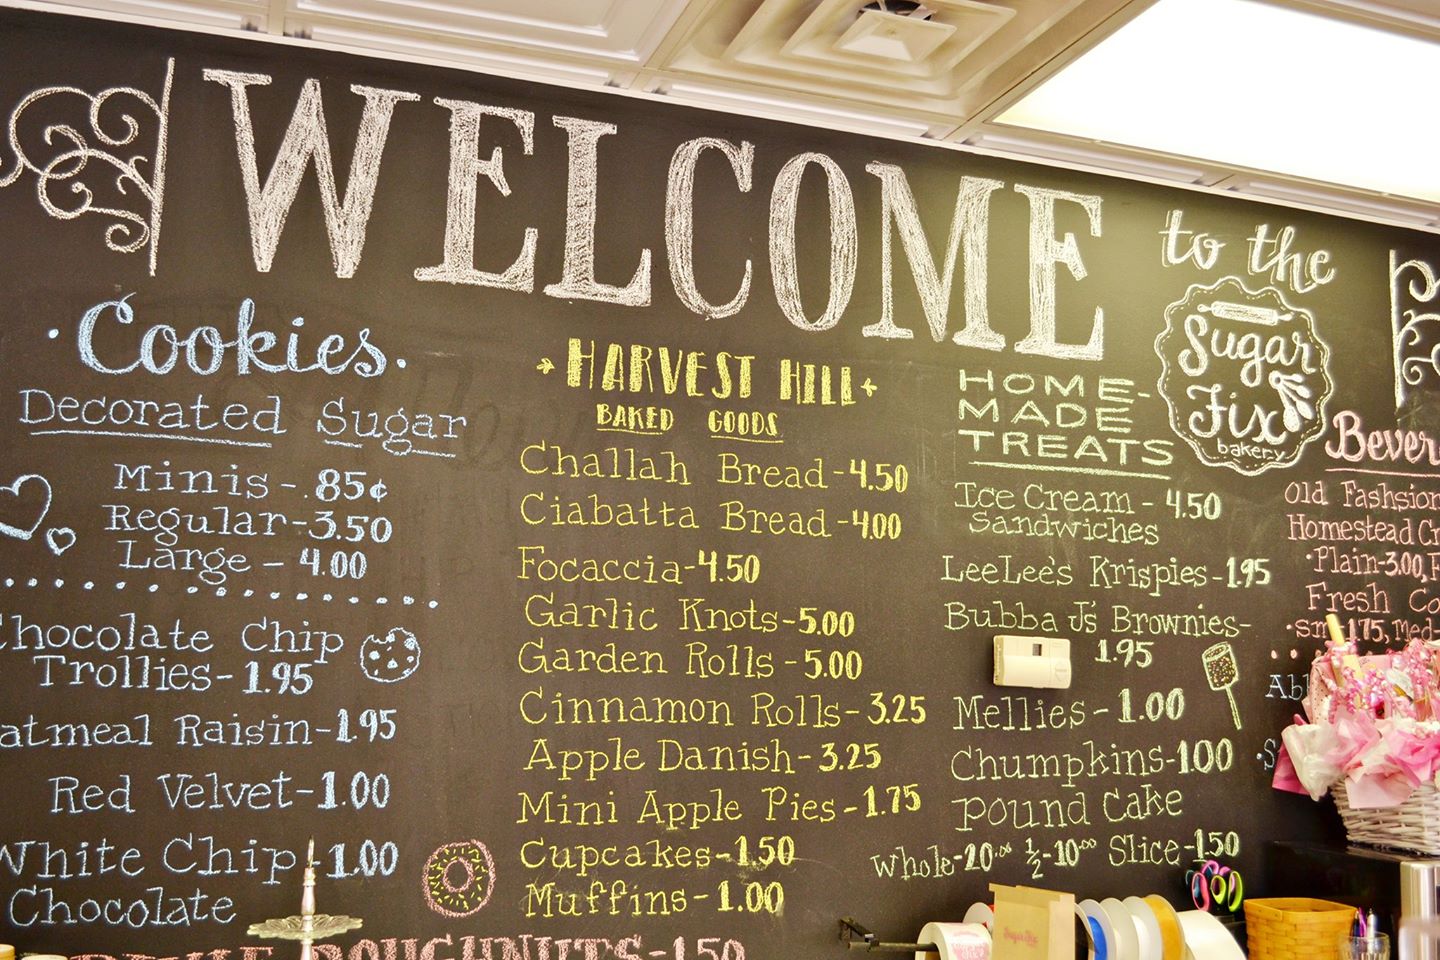 WELCOME
to the
Sugar
Fix
bakery
Cookies
Decorated Sugar
Minis - .85¢
Regular - 3.50
Large - 4.00
Chocolate Chip
Trollies - 1.95
Oatmeal Raisin - 1.95
Red Velvet - 1.00
White Chip - 1.00
Chocolate
DOUGHNUTS - 1.50
HARVEST HILL
BAKED GOODS
Challah Bread - 4.50
Ciabatta Bread - 4.00
Focaccia - 4.50
Garlic Knots - 5.00
Garden Rolls - 5.00
Cinnamon Rolls - 3.25
Apple Danish - 3.25
Mini Apple Pies - 1.75
Cupcakes - 1.50
Muffins - 1.00
HOME-
MADE
TREATS
Ice Cream - 4.50
Sandwiches
LeeLee's Krispies - 1.95
Bubba J's Brownies -
1.95
Mellies - 1.00
Chumpkins - 1.00
Pound Cake
Whole - 20.00 ½ - 10.00 Slice - 1.50
Bever
Old Fashsion
Homestead Cr
Plain - 3.00, F
Fresh Co
sm 1.75, Med